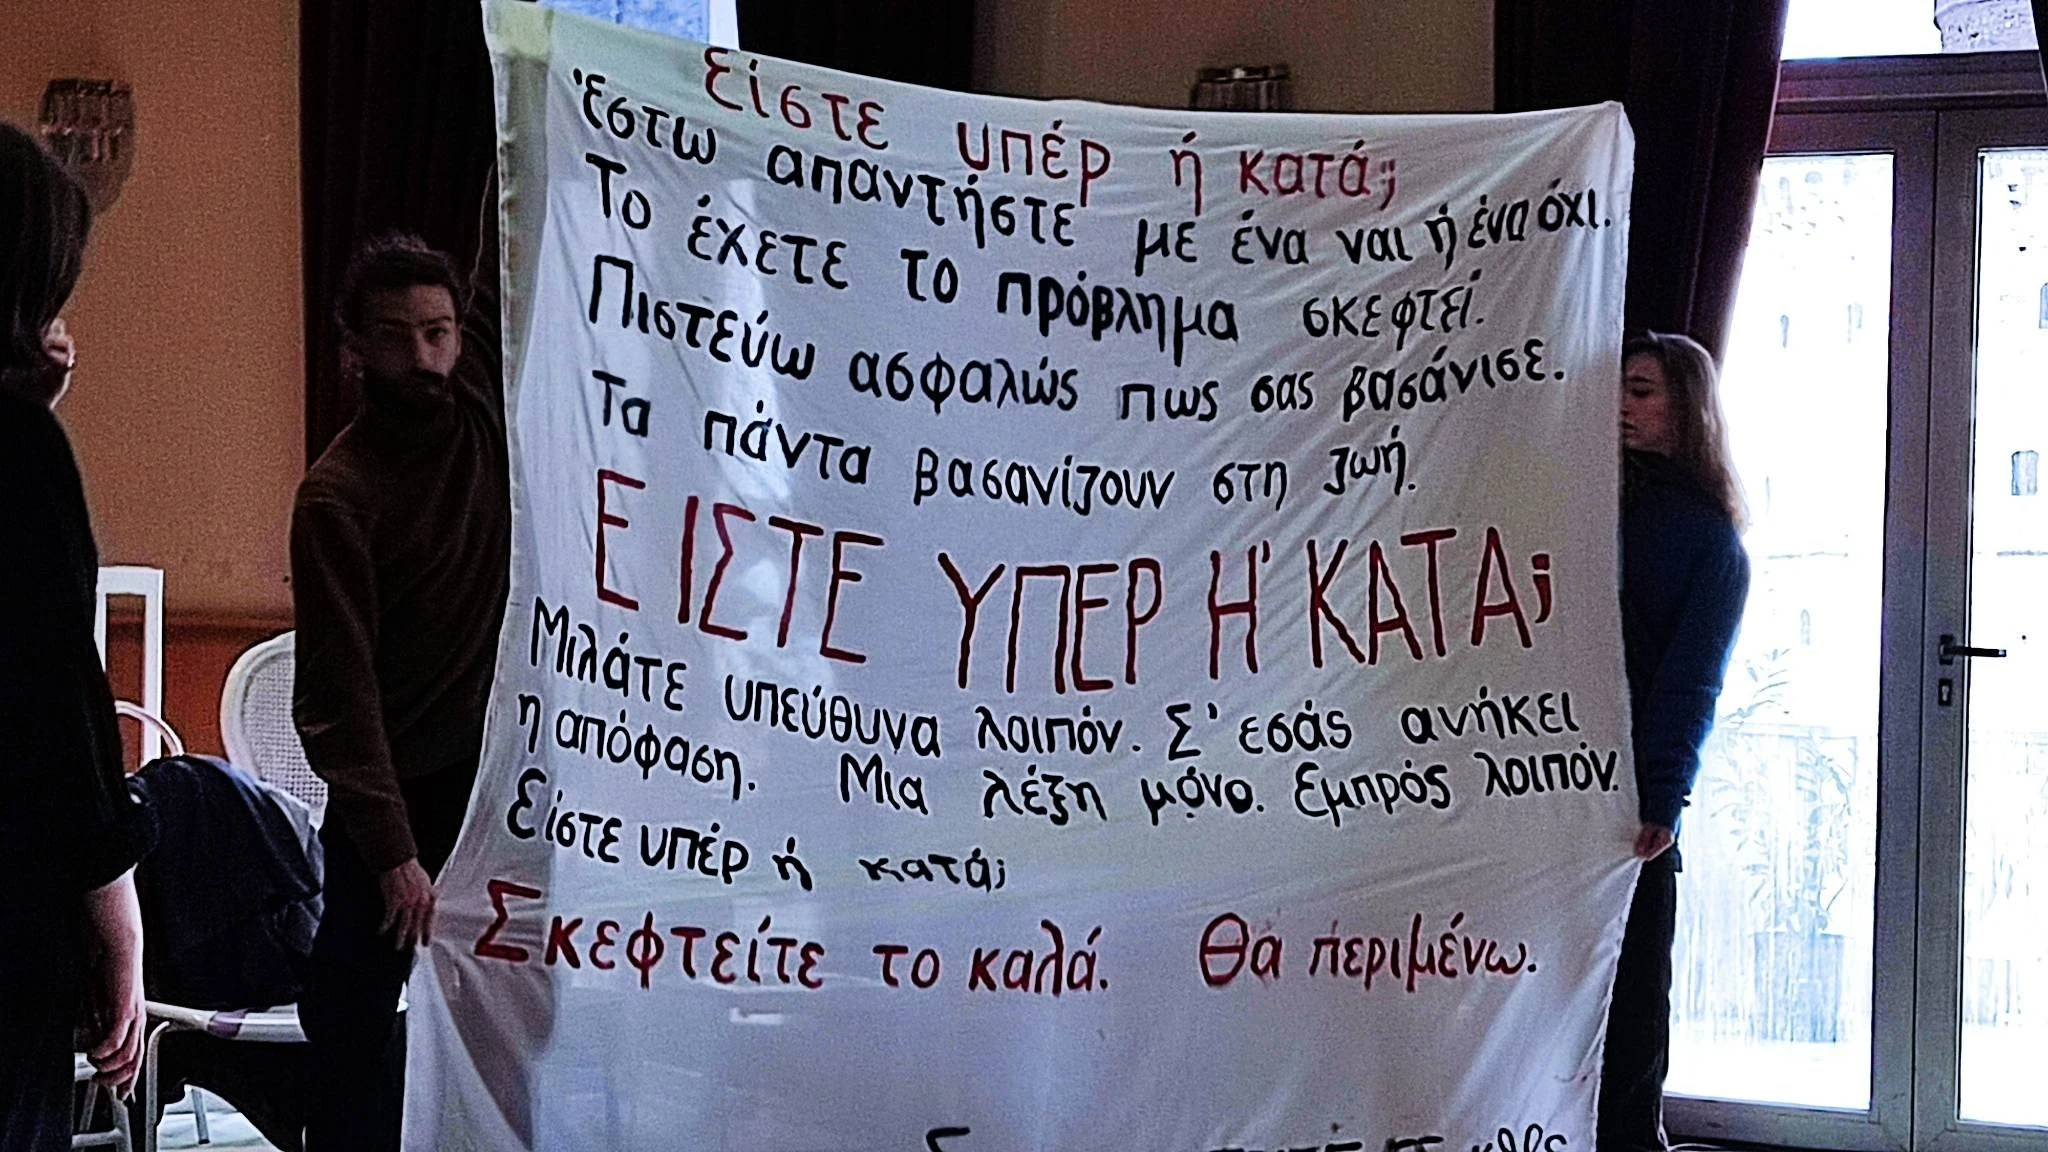 Είστε υπέρ ή κατά;
Έστω απαντήστε με ένα ναι ή ένα όχι.
Το έχετε το πρόβλημα σκεφτεί.
Πιστεύω ασφαλώς πως σας βασάνισε.
Τα πάντα βασανίζουν στη ζωή.
ΕΙΣΤΕ ΥΠΕΡ Η' ΚΑΤΑ;
Μιλάτε υπεύθυνα λοιπόν. Σ' εσάς ανήκει
η απόφαση. Μια λέξη μόνο. Εμπρός λοιπόν.
Είστε υπέρ ή κατά;
Σκεφτείτε το καλά. Θα περιμένω.